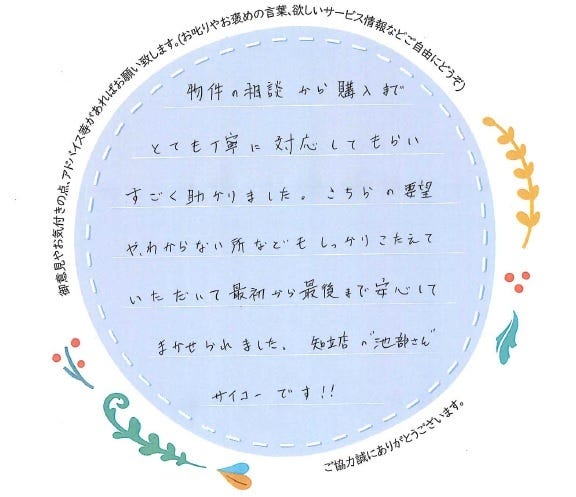 御意見やお気付きの点、アドバイス等があればお願い致します。(お叱りやお褒めの言葉、欲しいサービス情報などご自由にどうぞ)
物件の相談から購入まで
とても丁寧に対応してもらい
すごく助かりました。こちらの要望
や、わからない所などもしっかりこたえて
いただいて最初から最後まで安心して
まかせられました、知立店の"池部さん"
サイコーです!!
ご協力誠にありがとうございます。